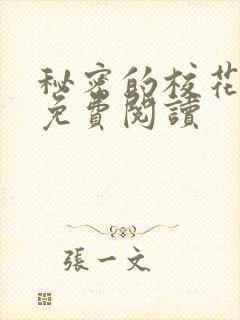 秘密的校花
免費閱讀
張一文